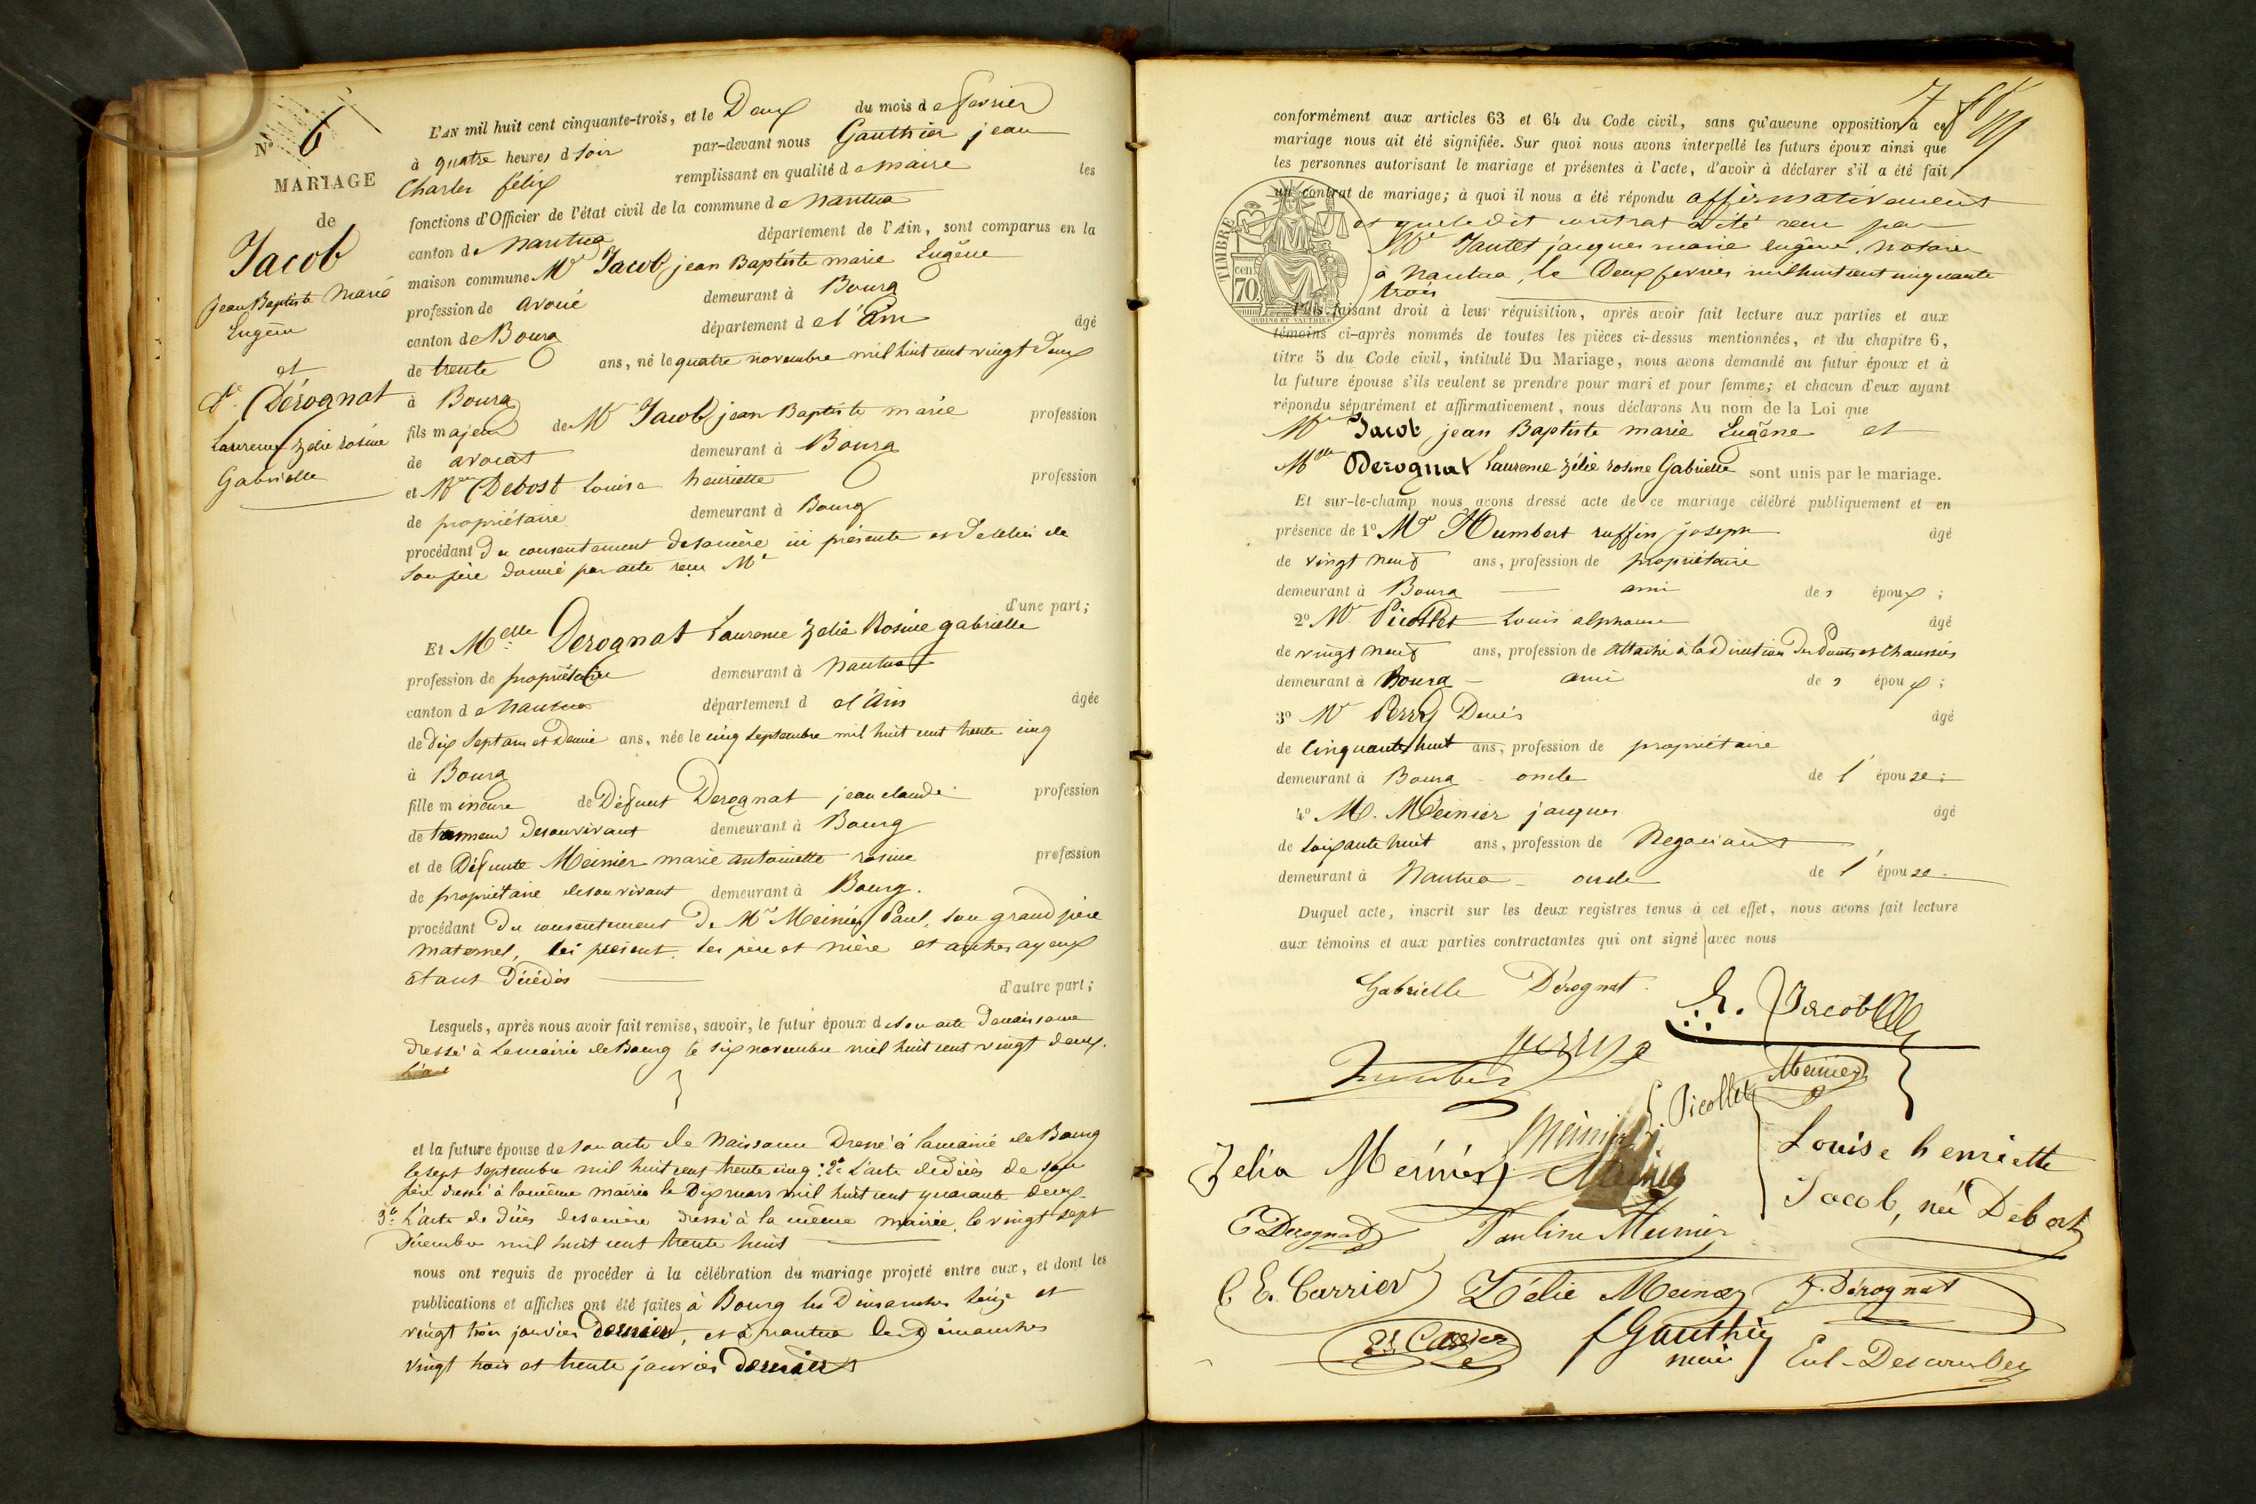 N° 6
MARIAGE
de
Jacob
Jean Baptiste Marie
Eugène
et
Dérognat
Laurence Zélie rosine
Gabrielle
L'AN mil huit cent cinquante-trois, et le Deux du mois de fevrier
à quatre heures d soir par-devant nous Gauthier jean
Charles félix remplissant en qualité de maire les
fonctions d'Officier de l'état civil de la commune de Nantua
canton de Nantua département de l'Ain, sont comparus en la
maison commune Mr Jacob jean Baptiste marie Eugène
profession de avoué demeurant à Bourg
canton de Bourg département de l'Ain âgé
de trente ans, né le quatre novembre mil huit cent vingt deux
à Bourg
fils majeur de Mr Jacob jean Baptiste marie profession
de avocat demeurant à Bourg
et Mme Debost Louise henriette profession
de propriétaire demeurant à Bourg
procédant du consentement de sa mère ici présente et de celui de
son père donné par acte reçu Me
d'une part;
Et Melle Derognat Laurence Zelie Rosine gabrielle
profession de propriétaire demeurant à Nantua
canton de Nantua département de l'Ain âgée
de dix sept ans et Demie ans, née le cinq septembre mil huit cent trente cinq
à Bourg
fille mineure de Défunt Derognat jean claude profession
de tanneur de son vivant demeurant à Bourg
et de Défunte Meinier marie antoinette rosine profession
de propriétaire de son vivant demeurant à Bourg.
procédant du consentement de Mr Meinier Paul, son grand père
maternel, ici présent, ses père et mère et autres ayeux
étant Décédés
d'autre part;
Lesquels, après nous avoir fait remise, savoir, le futur époux de son acte de naissance
dressé à la mairie de Bourg le six novembre mil huit cent vingt deux.
et la future épouse de son acte de Naissance Dressé à la mairie de Bourg
le sept septembre mil huit cent trente cinq: 2° L'acte de décès de son
père dressé à la même mairie le Dix mars mil huit cent quarante deux.
3° L'acte de décès de sa mère dressé à la même mairie, le vingt sept
Décembre mil huit cent trente huit
nous ont requis de procéder à la célébration du mariage projeté entre eux, et dont les
publications et affiches ont été faites à Bourg les Dimanches seize et
vingt trois janvier dernier, et à nantua les Dimanches
vingt trois et trente janvier derniers
7
conformément aux articles 63 et 64 du Code civil, sans qu'aucune opposition à ce
mariage nous ait été signifiée. Sur quoi nous avons interpellé les futurs époux ainsi que
les personnes autorisant le mariage et présentes à l'acte, d'avoir à déclarer s'il a été fait
un contrat de mariage; à quoi il nous a été répondu affirmativement
et que le dit contrat a été reçu par
Me Jantet jacques marie eugène, notaire
à Nantua, le Deux fevrier mil huit cent cinquante
trois
TIMBRE
cen
70
OUDINÉ ET VAUTHIER
Puis, faisant droit à leur réquisition, après avoir fait lecture aux parties et aux
témoins ci-après nommés de toutes les pièces ci-dessus mentionnées, et du chapitre 6,
titre 5 du Code civil, intitulé Du Mariage, nous avons demandé au futur époux et à
la future épouse s'ils veulent se prendre pour mari et pour femme; et chacun d'eux ayant
répondu séparément et affirmativement, nous déclarons Au nom de la Loi que
Mr Jacob jean Baptiste marie Eugène et
Melle Derognat Laurence Zélie rosine Gabrielle sont unis par le mariage.
Et sur-le-champ nous avons dressé acte de ce mariage célébré publiquement et en
présence de 1° Mr Humbert ruffin joseph âgé
de vingt neuf ans, profession de propriétaire
demeurant à Bourg ami de s époux;
2° Mr Picollet Louis alphonse âgé
de vingt neuf ans, profession de attaché à la direction des Ponts et Chaussées
demeurant à Bourg ami de s époux;
3° Mr Perry Denis âgé
de cinquante huit ans, profession de propriétaire
demeurant à Bourg oncle de l'épouse;
4° M. Meinier jacques âgé
de soixante huit ans, profession de Negociant
demeurant à Nantua oncle de l'épouse.
Duquel acte, inscrit sur les deux registres tenus à cet effet, nous avons fait lecture
aux témoins et aux parties contractantes qui ont signé avec nous
Gabrielle Dérognat.
E. Jacob
Perry
Humbert
Meinier
L. Picollet
Meinier
Zelia Meinier
Louise henriette
Jacob, née Debost
E Derognat
Pauline Meinier
C E. Carrier
Zélie Meinier
F. Dérognat
Es Carrier
f Gauthier
maire